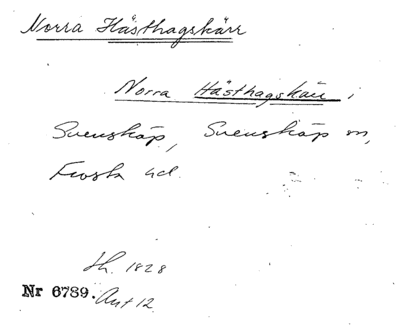 Norra Hästhagskärr
Norra Hästhagskärr i
Svensköp, Svensköp sn,
Frosta hd.
Sk. 1828
Nr 6789. Ant 12